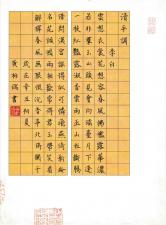 清平調
李白
雲想衣裳花想容春風拂檻露華濃
若非羣玉山頭見會向瑤臺月下逢
一枝紅豔露凝香雲雨巫山枉斷腸
借問漢宮誰得似可憐飛燕倚新妝
名花傾國兩相歡常得君王帶笑看
解釋春風無限恨沉香亭北倚闌干